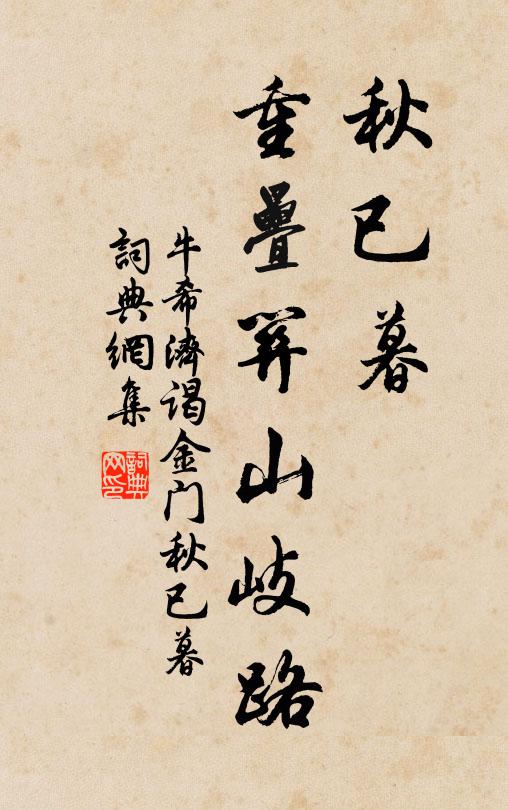 秋已暮
重疊關山歧路
牛希濟谒金门秋已暮
詞典網集
詞典網印